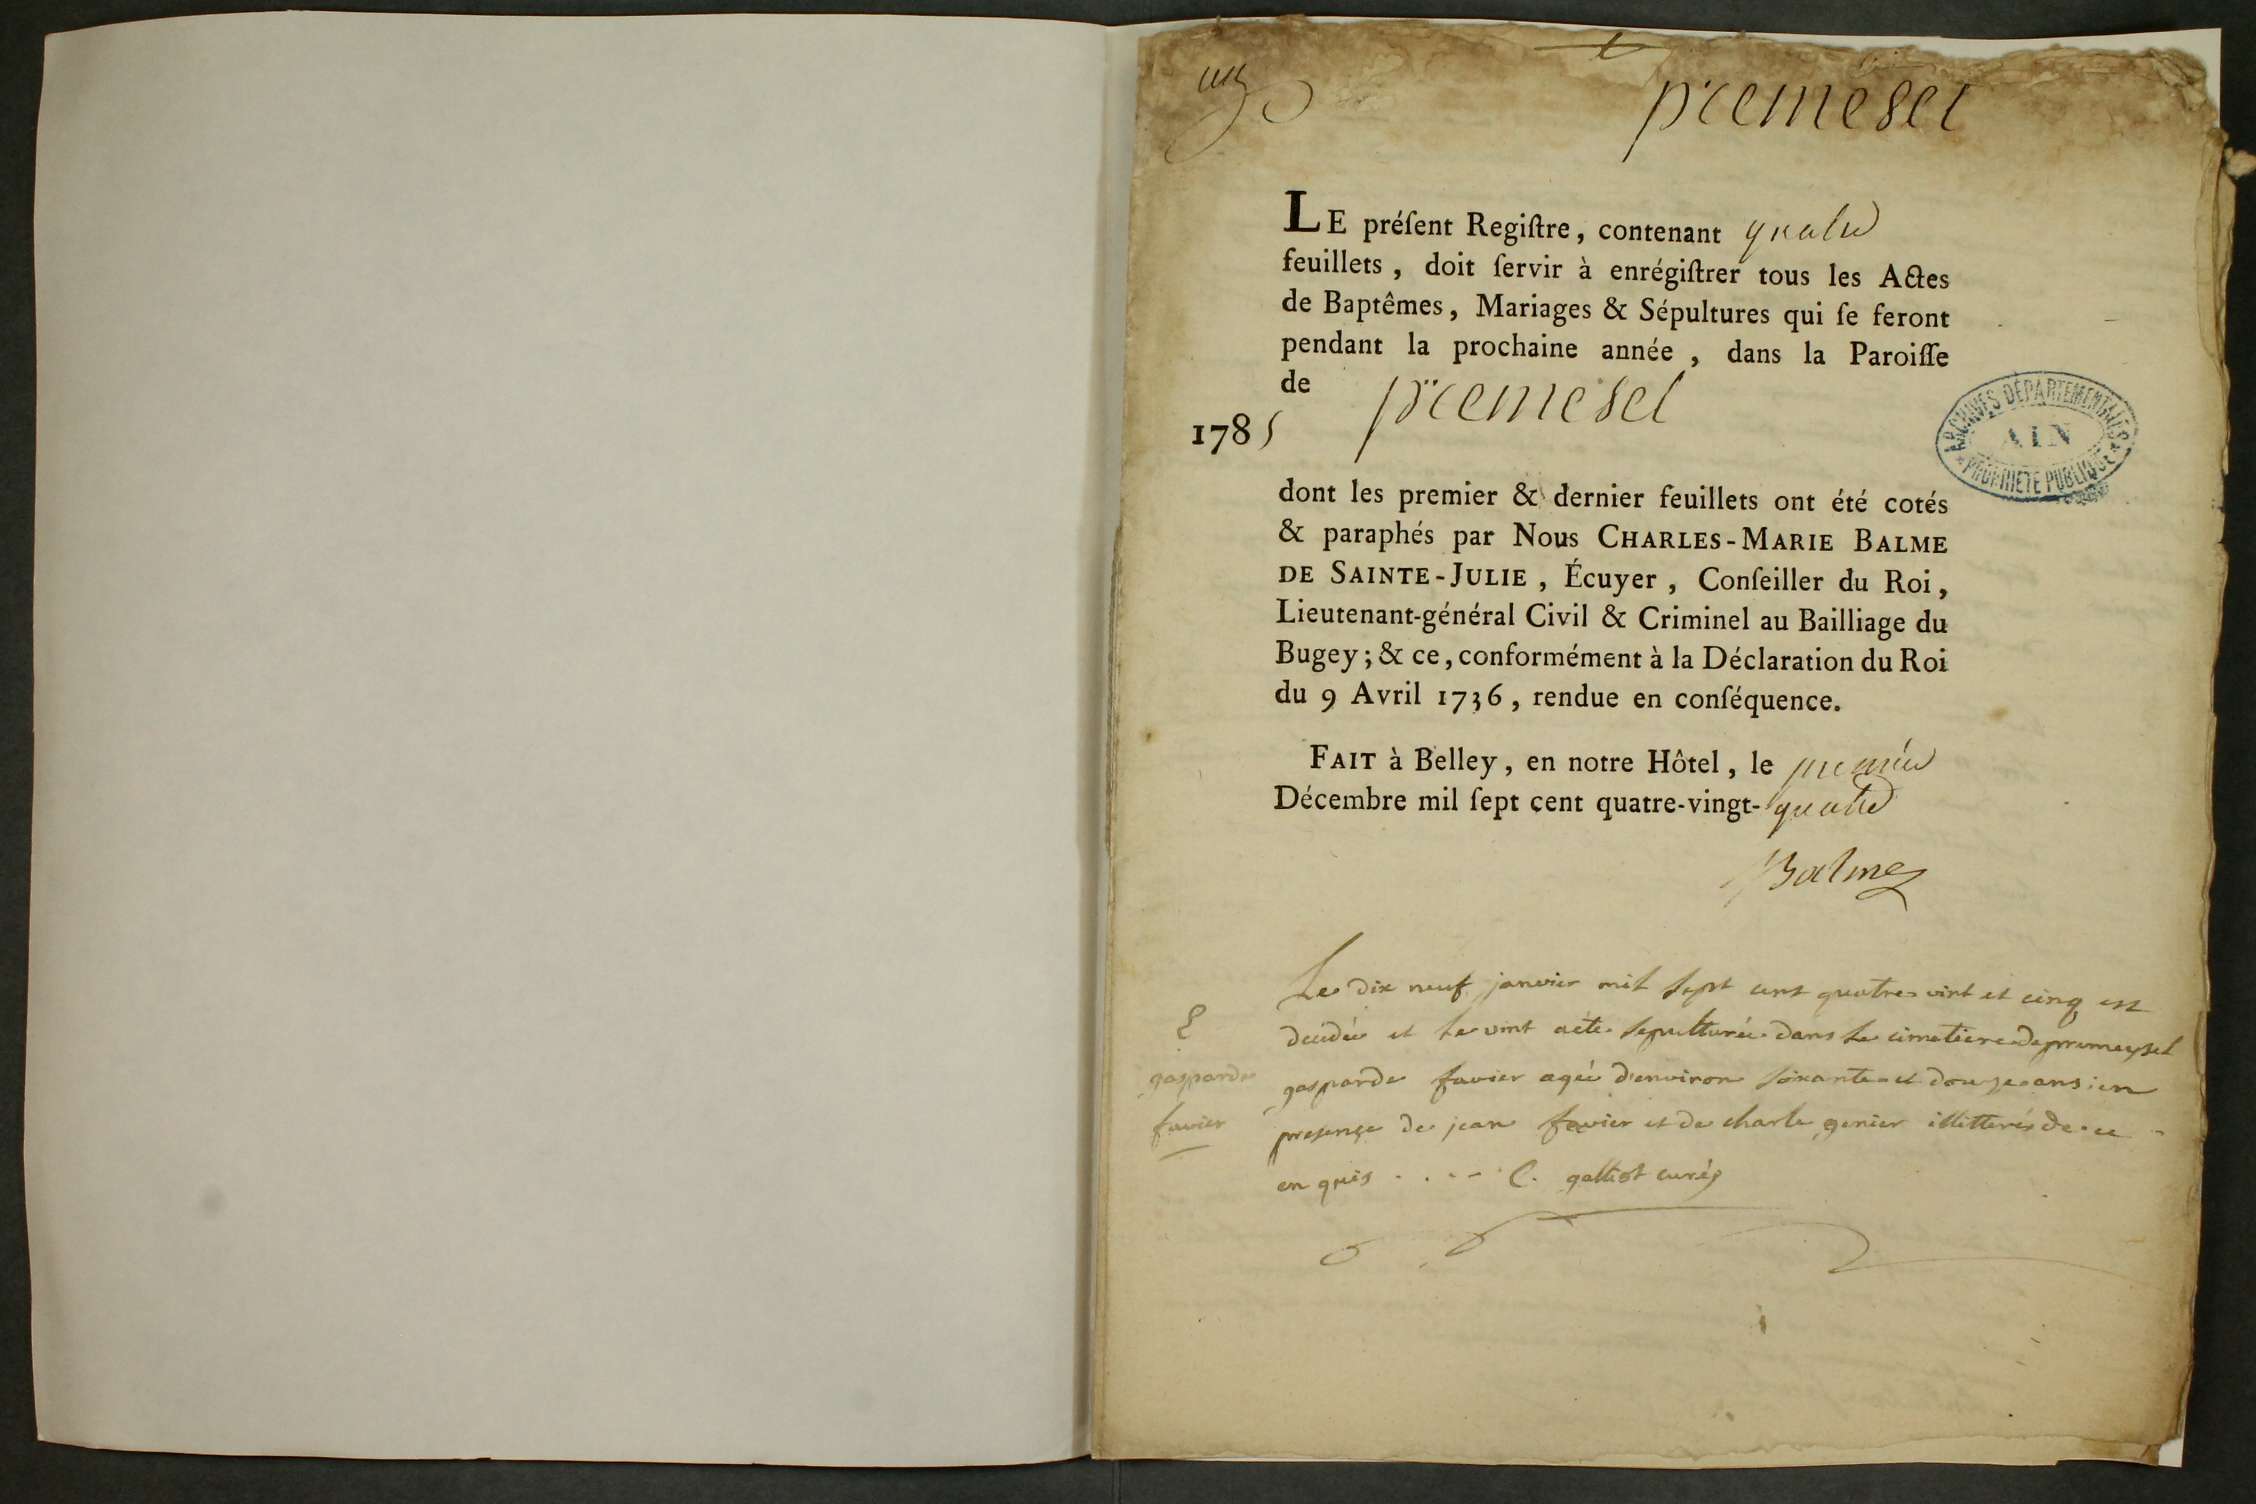 premesel
LE préſent Regiſtre, contenant quatre
feuillets, doit ſervir à enrégiſtrer tous les Actes
de Baptêmes, Mariages & Sépultures qui ſe feront
pendant la prochaine année, dans la Paroiſſe
de premesel
1785
ARCHIVES DÉPARTEMENTALES
AIN
PROPRIÉTÉ PUBLIQUE
dont les premier & dernier feuillets ont été cotés
& paraphés par Nous CHARLES-MARIE BALME
DE SAINTE-JULIE, Écuyer, Conſeiller du Roi,
Lieutenant-général Civil & Criminel au Bailliage du
Bugey; & ce, conformément à la Déclaration du Roi
du 9 Avril 1736, rendue en conſéquence.
FAIT à Belley, en notre Hôtel, le premier
Décembre mil ſept cent quatre-vingt-quatre
Balme
Le dix neuf janvier mil sept cent quatre vint et cinq est
décédée et le vint a été sepulturée dans le cimetiere de premeysel
gasparde favier agée d'environ soixante et douze ans en
presence de jean favier et de charle genier illitterés de ce
enquis .... C. galliot curé
gasparde
favier